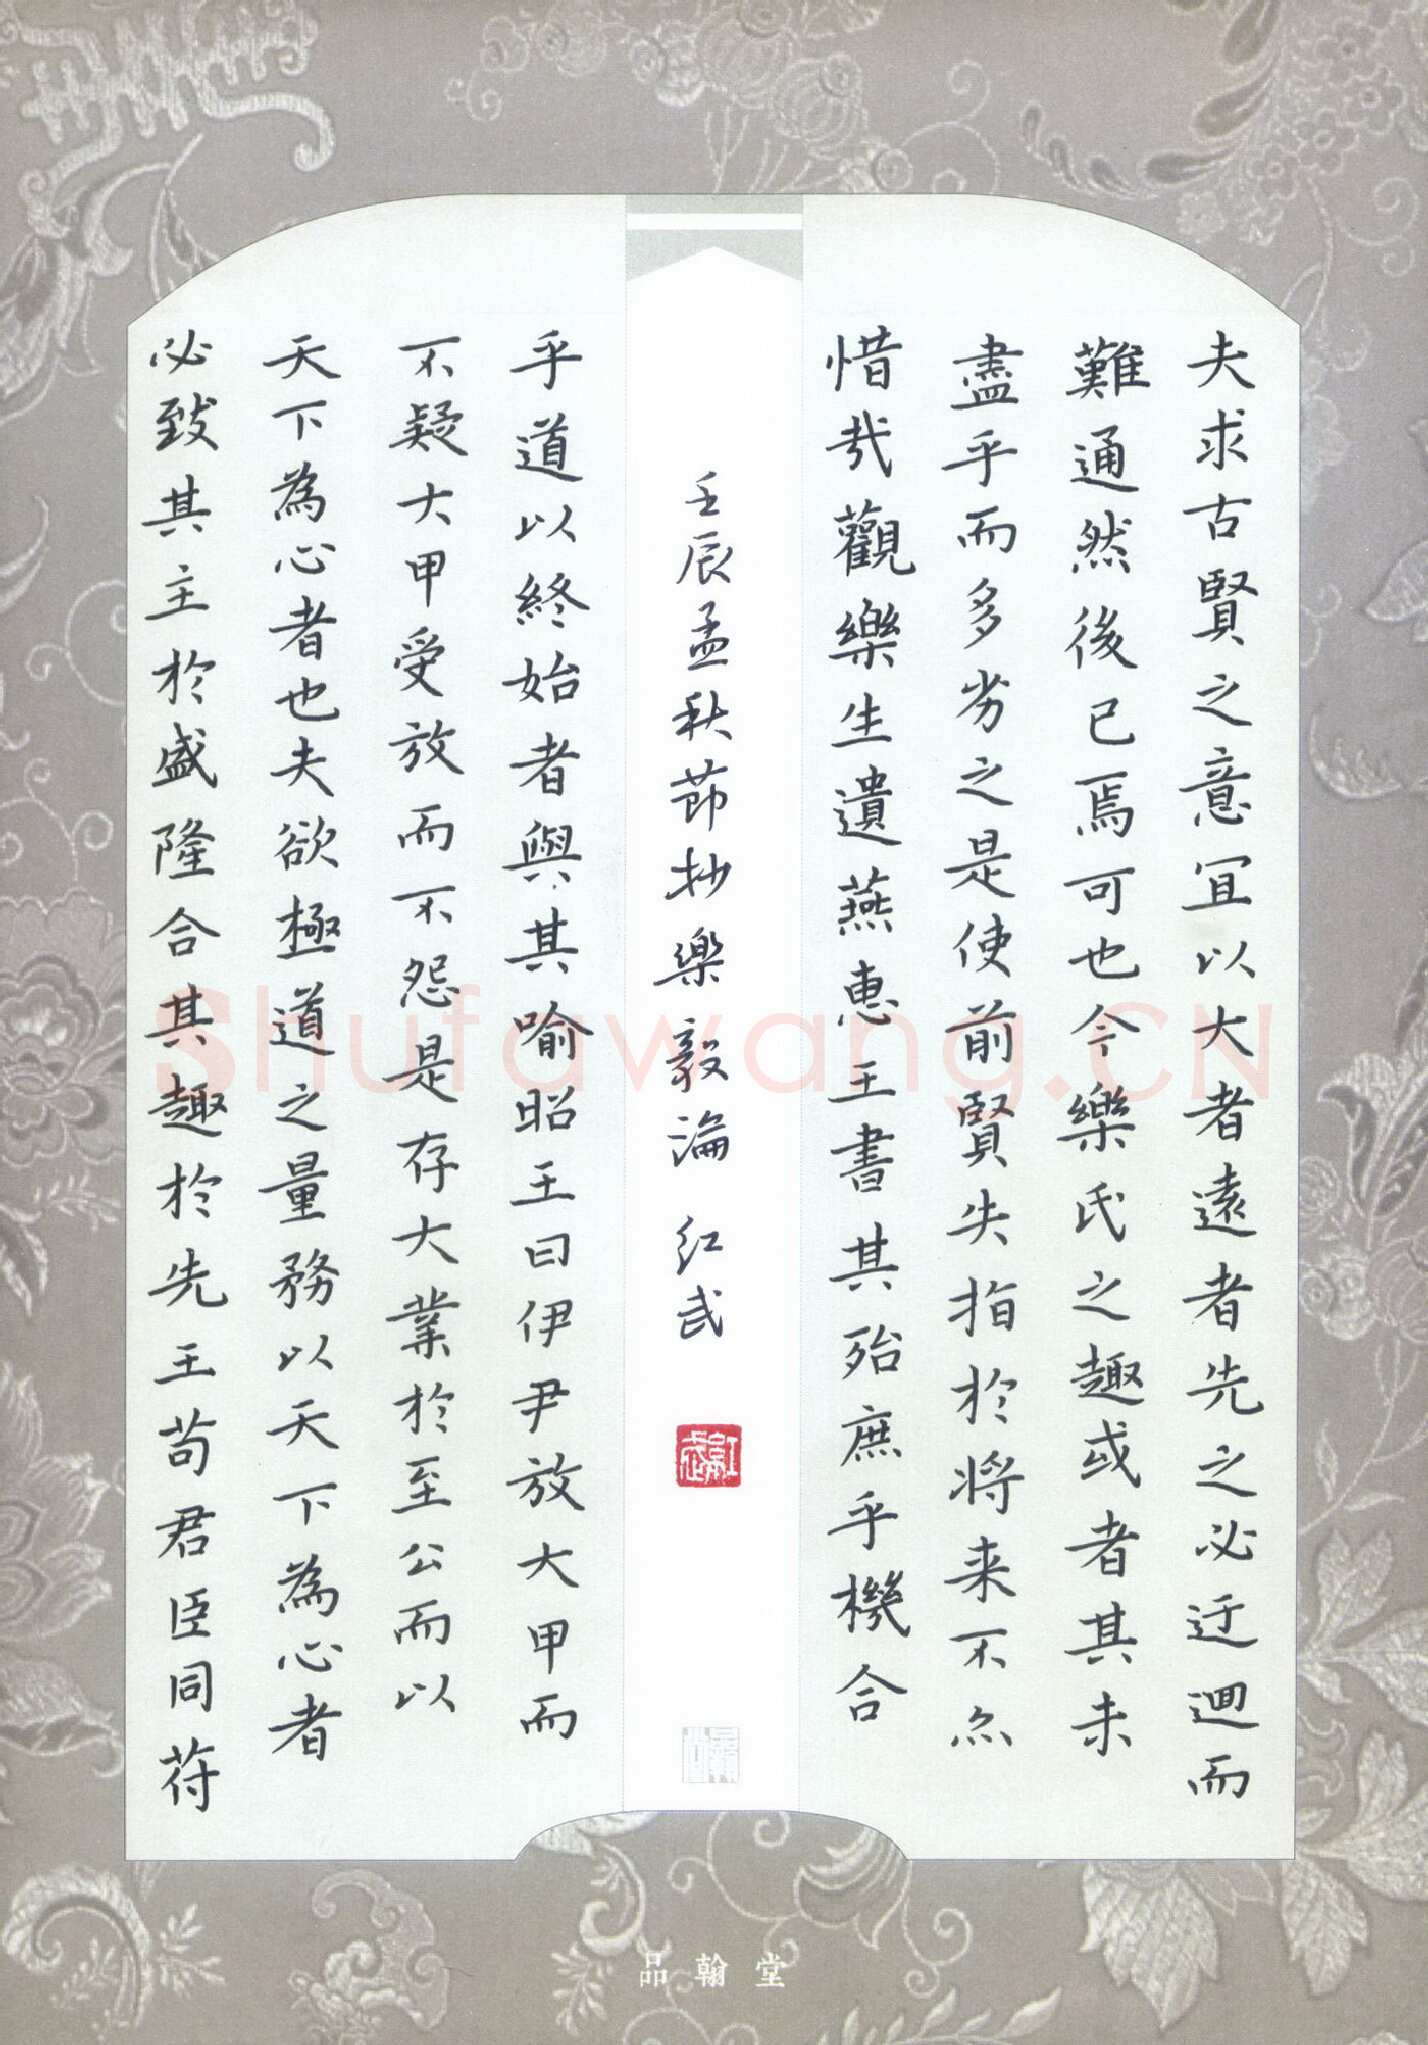 夫求古賢之意宜以大者遠者先之必迂迴而
難通然後已焉可也今樂氏之趣或者其未
盡乎而多劣之是使前賢失指於将来不亦
惜哉觀樂生遺燕惠王書其殆庶乎機合
乎道以終始者與其喻昭王曰伊尹放大甲而
不疑大甲受放而不怨是存大業於至公而以
天下為心者也夫欲極道之量務以天下為心者
必致其主於盛隆合其趣於先王苟君臣同苻
壬辰孟秋節抄樂毅論 红武
品翰堂
Shufawang.CN